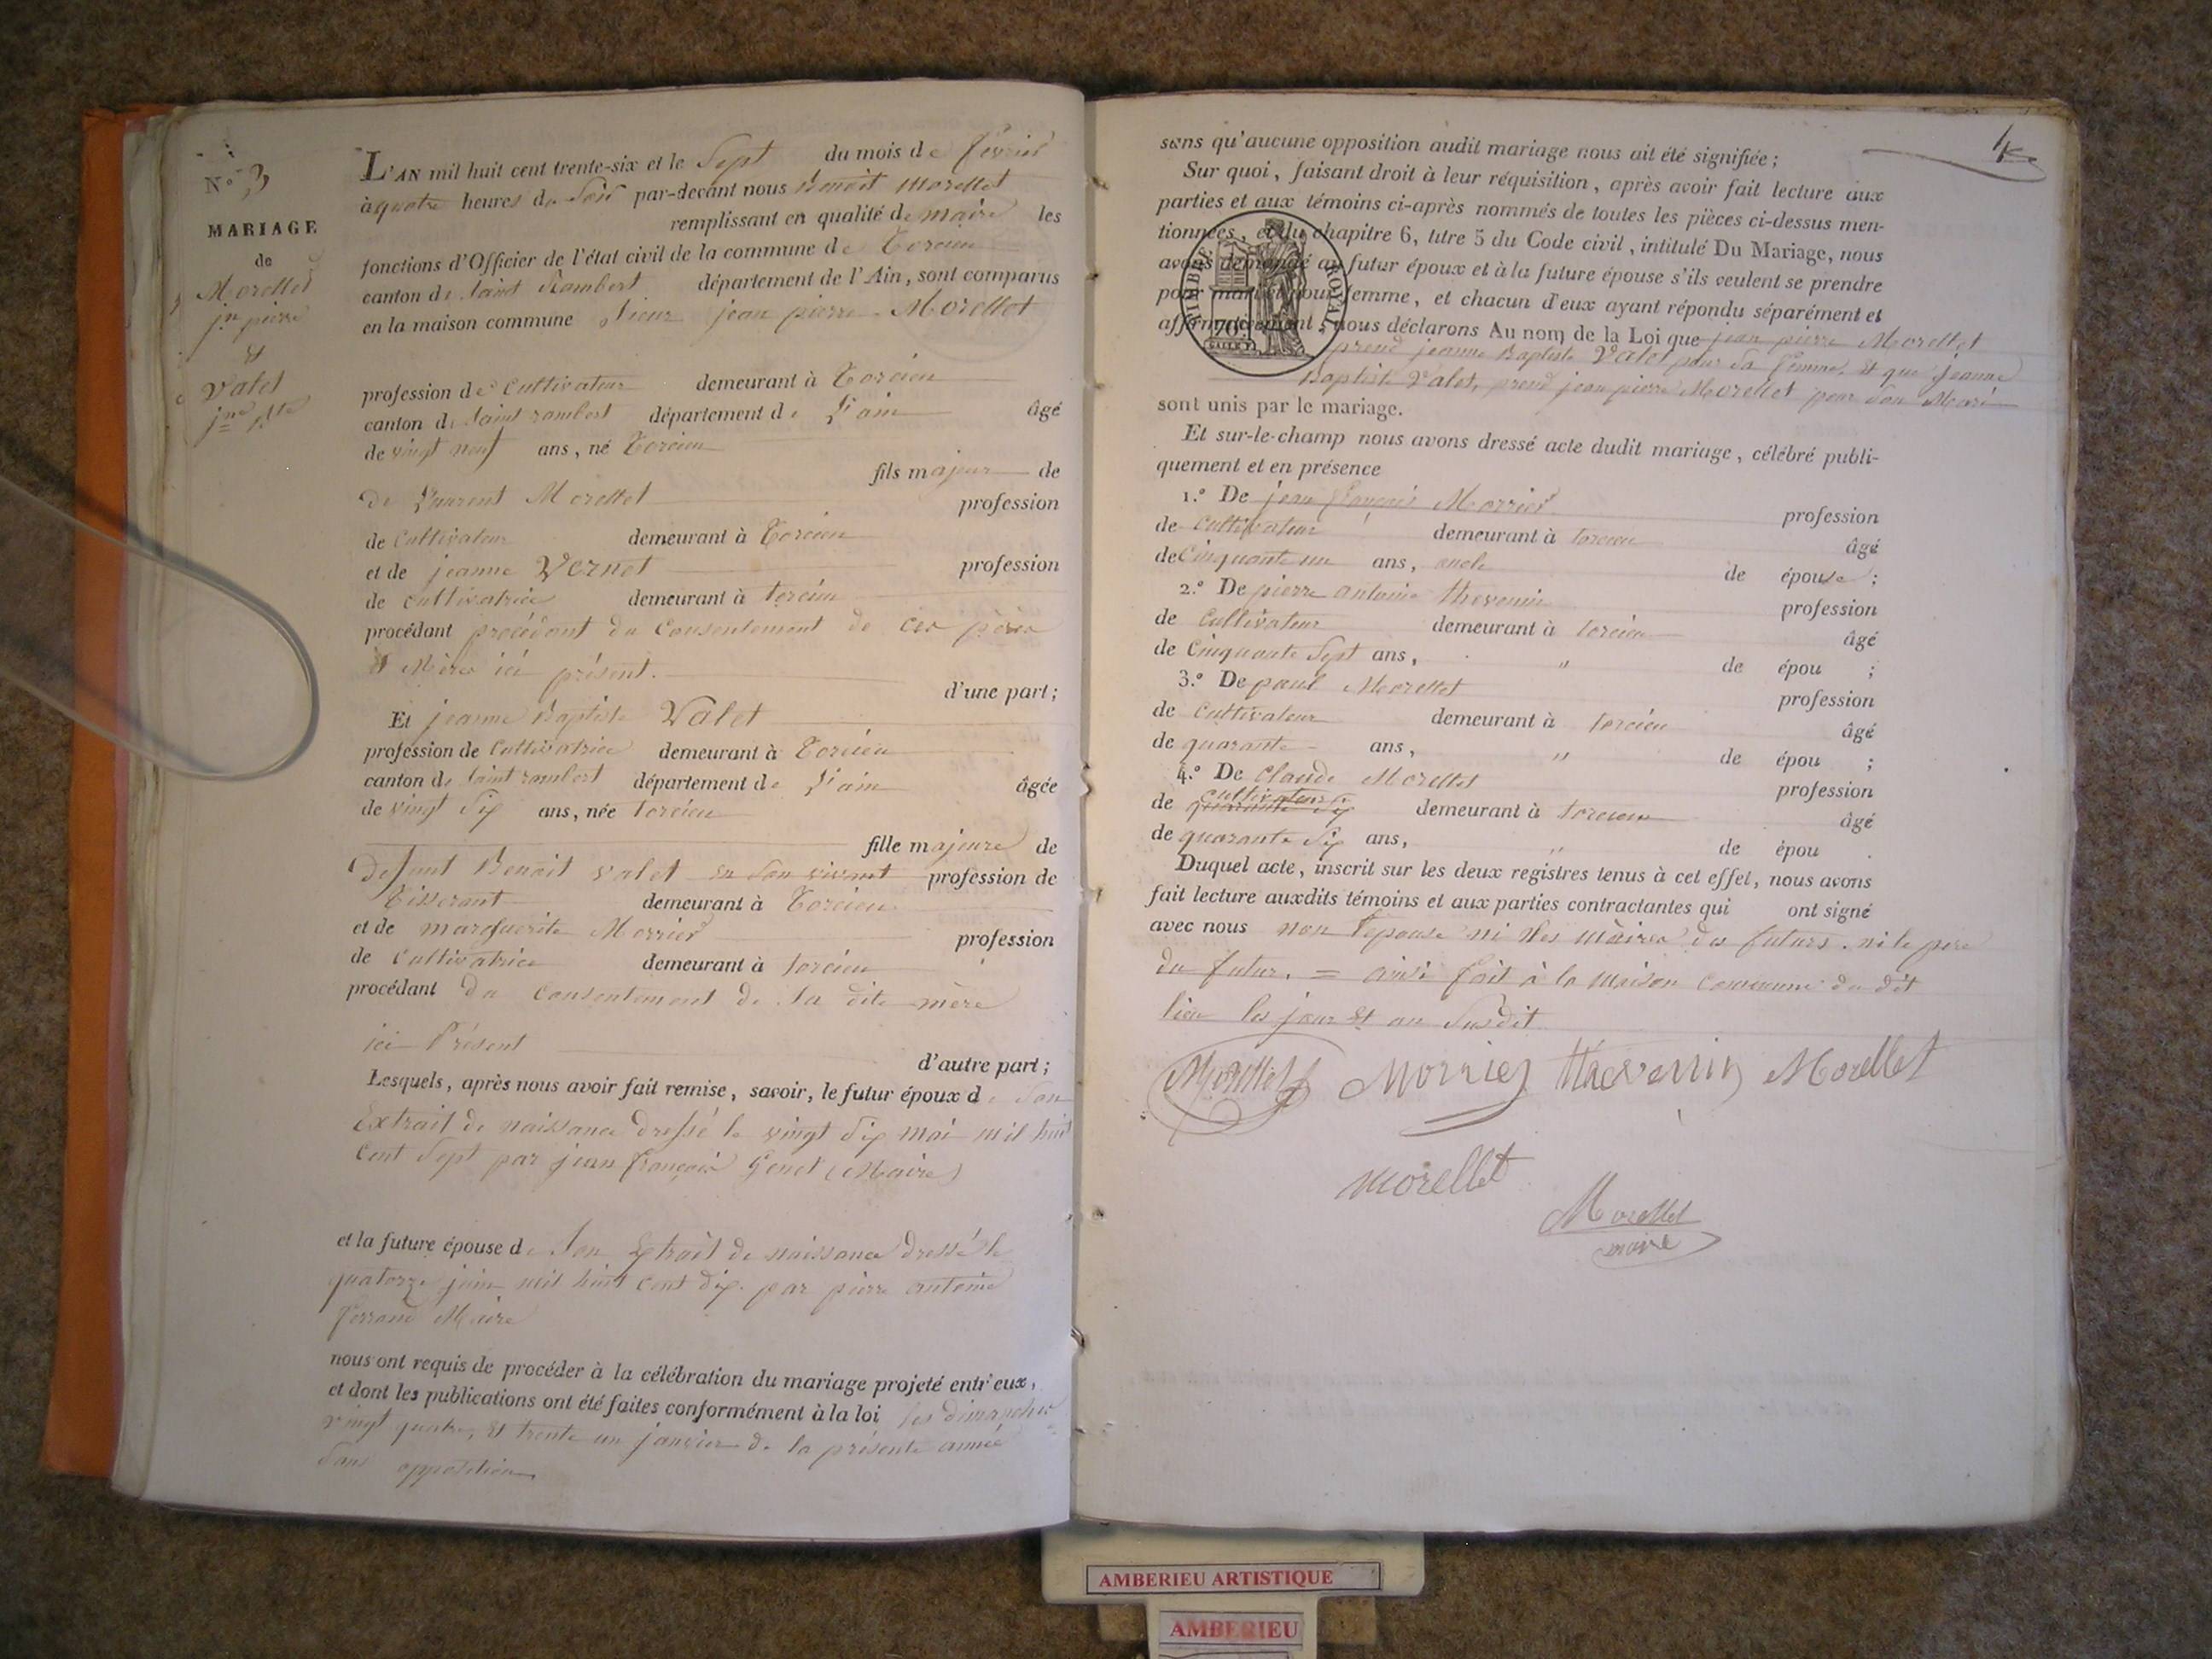 N.° 3
MARIAGE
de
Morellet
jn pierre
et
Valet
jne Bte
L'AN mil huit cent trente-six et le Sept du mois de Fevrier
à quatre heures du Soir par-devant nous Benoit Morellet
remplissant en qualité de maire les
fonctions d'Officier de l'état civil de la commune de Torcieu
canton de Saint Rambert département de l'Ain, sont comparus
en la maison commune Sieur jean pierre Morellet
profession de Cultivateur demeurant à Torcieu
canton de Saint rambert département de L'ain âgé
de vingt neuf ans, né Torcieu
fils majeur de
de Laurent Morellet profession
de Cultivateur demeurant à Torcieu
et de jeanne Vernet profession
de cultivatrice demeurant à torcieu
procédant procédant du Consentement de ces pères
et Mères ici présent.
d'une part;
Et jeanne Baptiste Valet
profession de Cultivatrice demeurant à Torcieu
canton de Saint rambert département de L'ain âgée
de vingt Six ans, née Torcieu
fille majeure de
defunt Benoit valet en Son vivant profession de
Tisserant demeurant à Torcieu
et de marguerite Morrier profession
de Cultivatrice demeurant à torcieu
procédant du Consentement de Sa dite mère
ici Présent
d'autre part;
Lesquels, après nous avoir fait remise, savoir, le futur époux de Son
Extrait de naissance dressé le vingt Six Mai mil huit
Cent Sept par jean françois Genet (Maire)
et la future épouse de Son Extrait de naissance dressé le
quatorze juin mil huit Cent dix par pierre antoine
Ferrand Maire
nous ont requis de procéder à la célébration du mariage projeté entr'eux,
et dont les publications ont été faites conformément à la loi les dimanches
vingt quatre, et trente un janvier de la présente année
Sans opposition
sans qu'aucune opposition audit mariage nous ait été signifiée;
Sur quoi, faisant droit à leur réquisition, après avoir fait lecture aux
parties et aux témoins ci-après nommés de toutes les pièces ci-dessus men-
tionnées, et du chapitre 6, titre 5 du Code civil, intitulé Du Mariage, nous
avons demandé au futur époux et à la future épouse s'ils veulent se prendre
pour mari et pour femme, et chacun d'eux ayant répondu séparément et
affirmativement, nous déclarons Au nom de la Loi que jean pierre Morellet
prend jeanne Baptiste Valet pour Sa femme. et que jeanne
Baptiste Valet, prend jean pierre Morellet pour Son Mari
sont unis par le mariage.
TIMBRE ROYAL
70c
Et sur-le-champ nous avons dressé acte dudit mariage, célébré publi-
quement et en présence
1.° De jean françois Morrier profession
de Cultivateur demeurant à torcieu âgé
de Cinquante un ans, oncle de épouse;
2.° De pierre antoine thevenin profession
de Cultivateur demeurant à torcieu âgé
de Cinquante Sept ans, " de épou ;
3.° De paul Morellet profession
de Cultivateur demeurant à torcieu âgé
de quarante ans, " de épou ;
4.° De Claude Morellet profession
cultivateur
de quarante Six demeurant à torcieu âgé
de quarante Six ans, " de épou .
Duquel acte, inscrit sur les deux registres tenus à cet effet, nous avons
fait lecture auxdits témoins et aux parties contractantes qui ont signé
avec nous non l'épouse ni les mères des futurs. ni le père
du futur. = ainsi fait à la maison commune du dit
lieu les jour et an Susdit
Morellet Morrier thevenin Morellet
morellet
Morellet
maire
AMBERIEU ARTISTIQUE
AMBERIEU